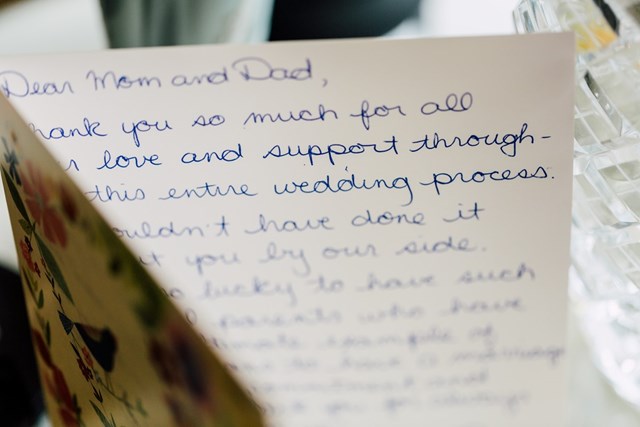 Dear Mom and Dad,
hank you so much for all
r love and support through-
this entire wedding process.
ouldn't have done it
t you by our side.
o lucky to have such
parents who have
example of